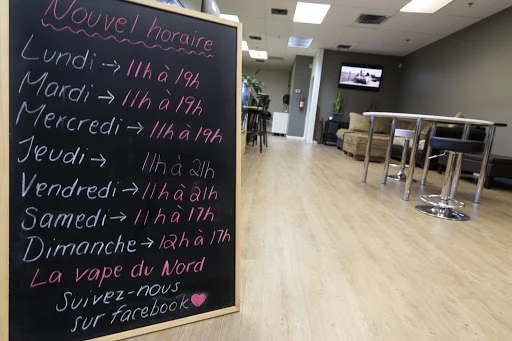 Nouvel horaire
Lundi → 11h à 19h
Mardi → 11h à 19h
Mercredi → 11h à 19h
Jeudi → 11h à 21h
Vendredi → 11h à 21h
Samedi → 11h à 17h
Dimanche → 12h à 17h
La vape du Nord
Suivez-nous
sur facebook